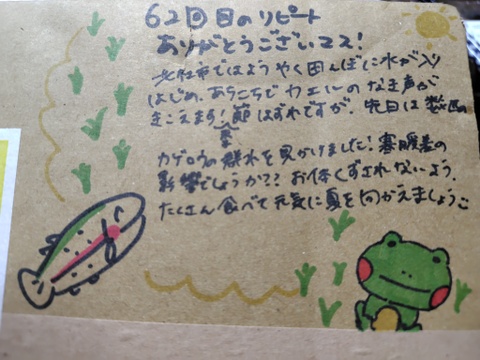 62回目のリピート
ありがとうございます!
北杜市ではようやく田んぼに水が入り
はじめ、あちこちでカエルのなき声が
きこえます!節はずれですが、先日は数匹の
季
カゲロウの群れを見かけました!寒暖差の
影響でしょうか?? お体くずされないよう、
たくさん食べて元気に夏を向かえましょうこ